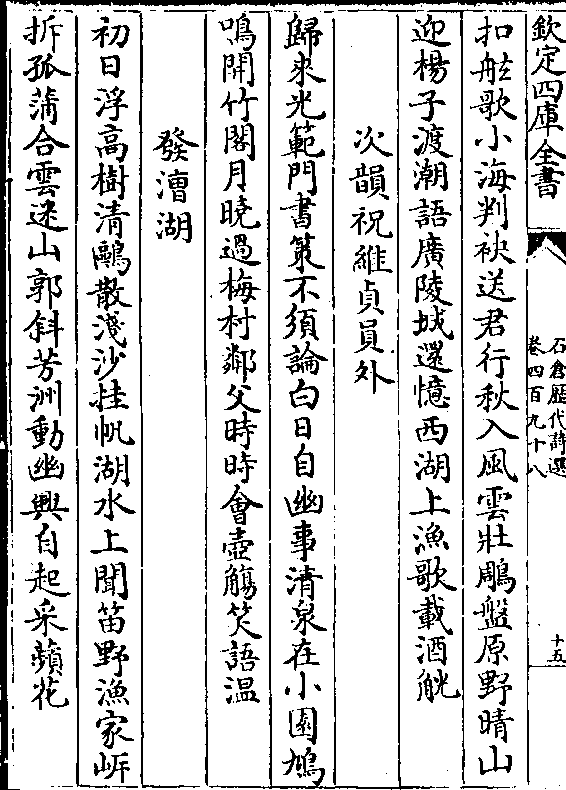 欽定四庫全書
石倉歷代詩選
卷四百九十八
十五
扣舷歌小海判袂送君行秋入風雲壯鵰盤原野晴山
迎楊子渡潮語廣陵城還憶西湖上漁歌載酒觥
次韻祝維貞員外
歸來光範門書策不須論白日自幽事清泉在小園鳩
鳴開竹閣月曉過梅村鄰父時時會壺觴笑語溫
發漕湖
初日浮高樹清鷗散淺沙挂帆湖水上聞笛野漁家岍
拆孤蒲合雲迷山郭斜芳洲動幽興自起采蘋花